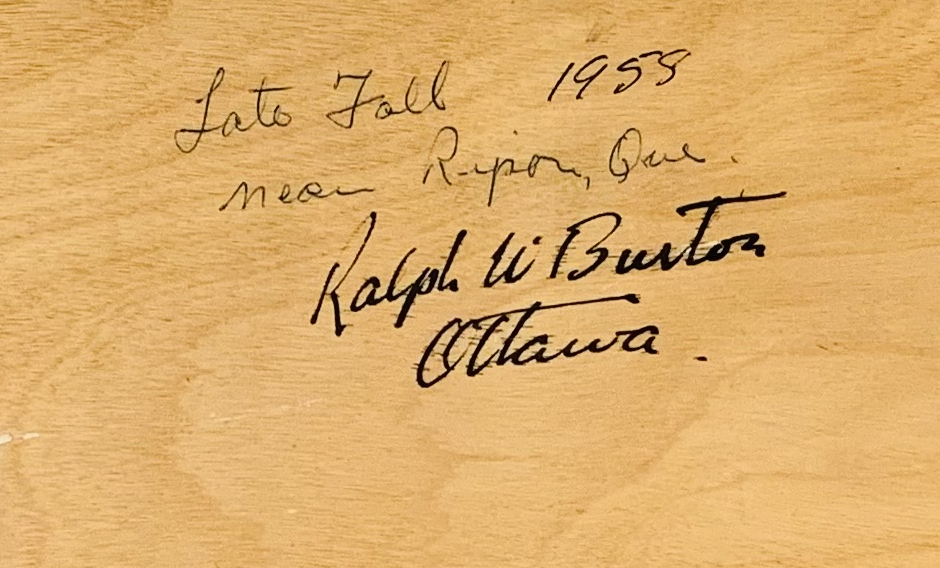 Late Fall 1958
near Ripon, Que.
Ralph W Burton
Ottawa.